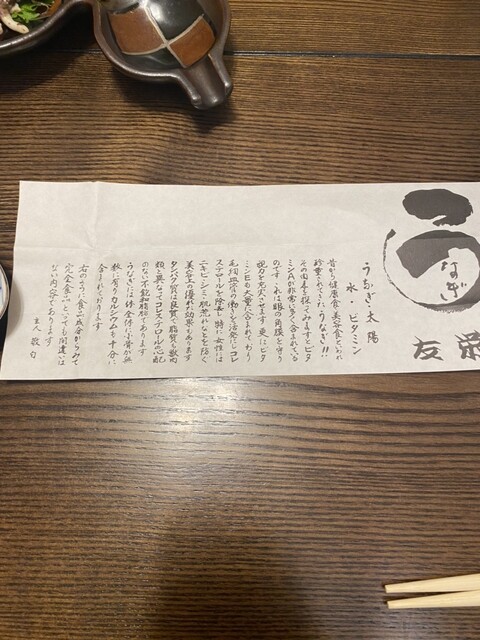 うなぎ
友栄
うなぎ・太陽
水・ビタミン
昔から健康食・美容食といわれ
珍重されてきた〝うなぎ〟!!
その内容を探ってみますとビタ
ミンAが非常に多く含まれている
のです これは眼の角膜を守り
視力を充実させます 更にビタ
ミンEも大量に含まれており
毛細血管の働きを活発にしコレ
ステロールを除去し 特に女性には
ニキビ・シミ・肌荒れなどを防ぐ
美容上の優れた効果もあります
タンパク質は良質で脂質も獣肉
類と異なってコレステロールの心配
のない不飽和脂肪であります
うなぎには体全体に小骨が無
数に有りカルシウムも十分に
含まれております
右のように食品成分からみて
完全食品といっても間違いは
ない内容であります
主人 敬白